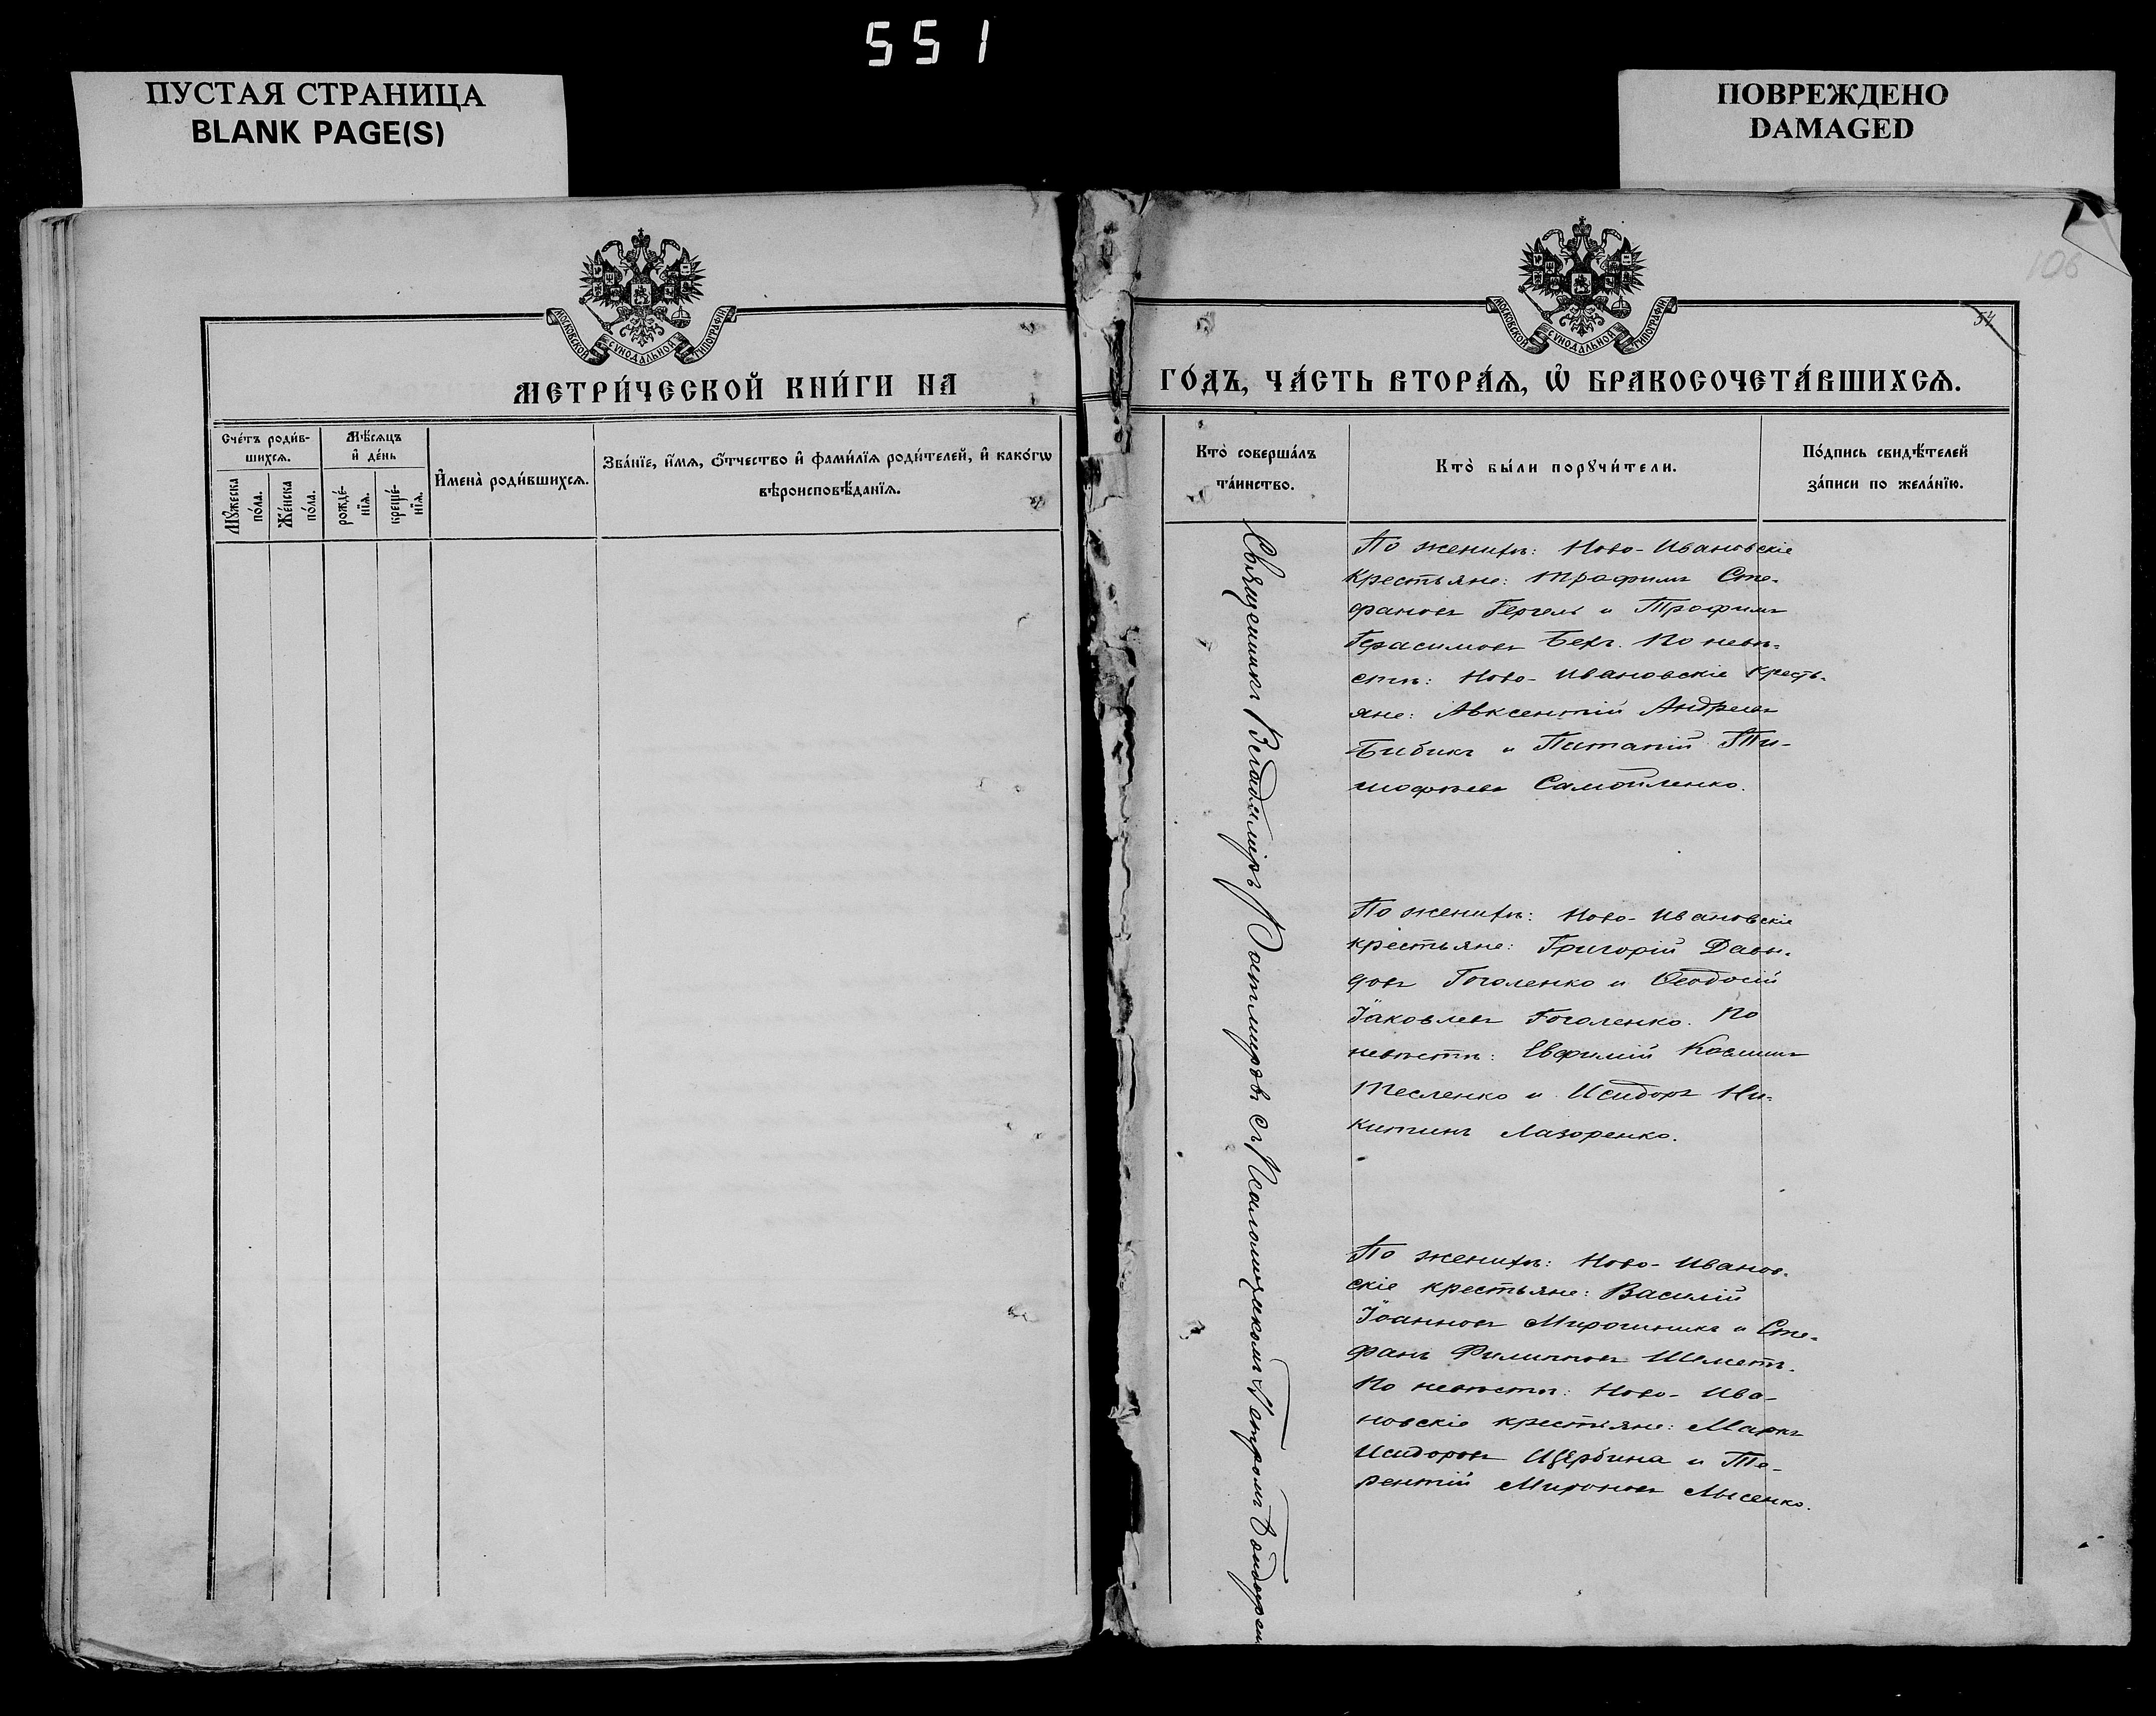 551
ПУСТАЯ СТРАНИЦА
BLANK PAGE(S)
ПОВРЕЖДЕНО
DAMAGED
МОСКОВСКОЙ СѴНОДАЛЬНОЙ ТИПОГРАФІИ
МЕТРИ́ЧЕСКОЙ КНИ́ГИ НА
Сче́тъ роди́в-
шихсѧ.
Мѣ́сѧцъ
и҆ де́нь
И҆мена̀ роди́вшихсѧ.
Зва́нїе, и҆́мѧ, ѻ҆́тчество и҆ фами́лїѧ роди́телей, и҆ како́гѡ
вѣроисповѣ́данїѧ.
Мꙋ́жеска
по́ла.
Же́нска
по́ла.
рожде́-
нїѧ.
креще́-
нїѧ.
106
54
МОСКОВСКОЙ СѴНОДАЛЬНОЙ ТИПОГРАФІИ
ГО́ДЪ, ЧА́СТЬ ВТОРА́Ѧ, Ѽ БРАКОСОЧЕТА́ВШИХСѦ.
Кто̀ соверша́лъ
та́инство.
Кто̀ бы́ли порꙋчи́тели.
По́дпись свидѣ́телей
за́писи по жела́нїю.
Священникъ Владиміръ Тостмировъ съ Псаломщикомъ Петромъ
По женихѣ: Ново-Ивановскіе
крестьяне: Трофимъ Сте-
фановъ Гергель и Трофимъ
Герасимовъ Бехъ. По невѣ-
стѣ: Ново-Ивановскіе кресть-
яне: Авксентій Андреевъ
Бибикъ и Потапій Ти-
мофѣевъ Самойленко.
По женихѣ: Ново-Ивановскіе
крестьяне: Григорій Давы-
довъ Гоголенко и Ѳеодосій
Іаковлевъ Гоголенко. По
невѣстѣ: Евфимій Косминъ
Тесленко и Исидоръ Ни-
китинъ Лазоренко.
По женихѣ: Ново-Иванов-
скіе крестьяне: Василій
Іоанновъ Мирошникъ и Сте-
фанъ Филипповъ Шеметъ.
По невѣстѣ: Ново-Ива-
новскіе крестьяне: Маркъ
Исидоровъ Щербина и Те-
рентій Мироновъ Лысенко.